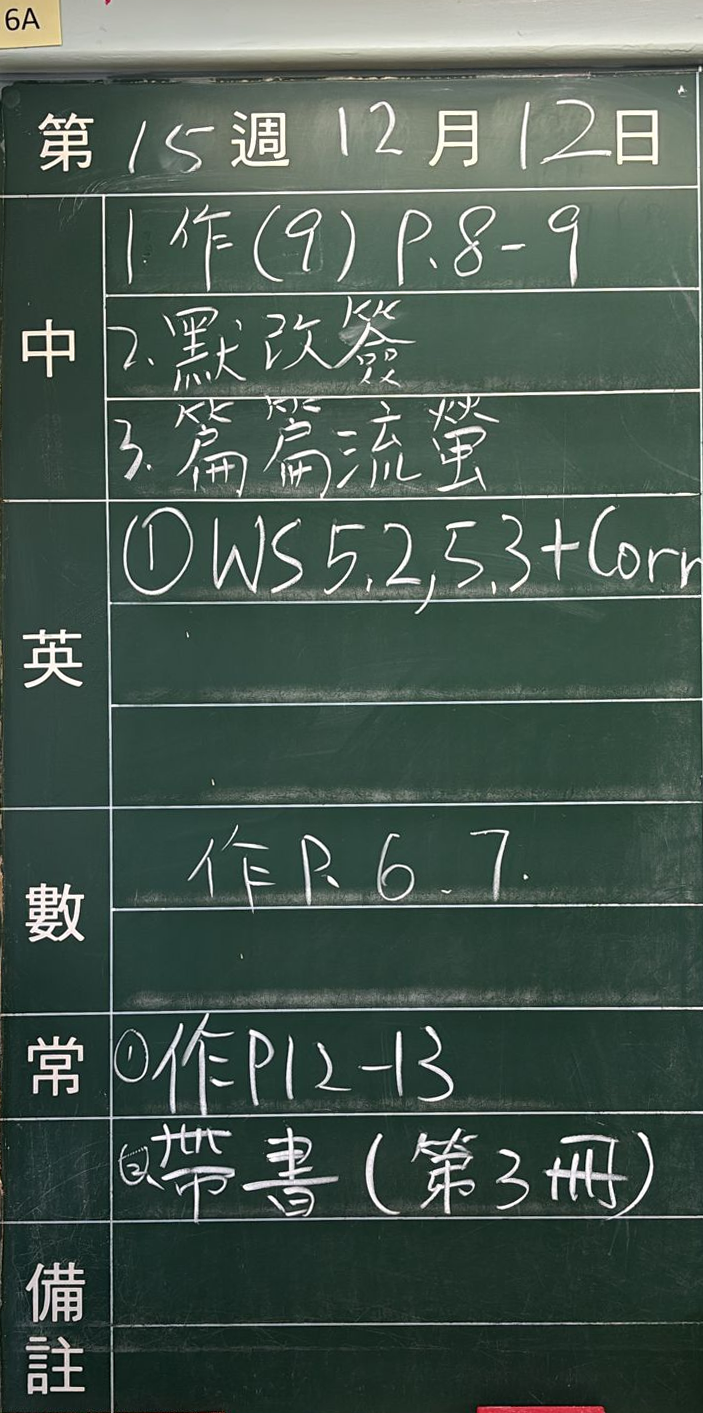 6A
第 15 週 12 月 12 日
中
1. 作(9) P.8-9
2. 默改簽
3. 篇篇流螢
英
① WS 5.2, 5.3 + Corr
數
作 P. 6、7.
常
① 作 P12-13
② 帶書(第3冊)
備註